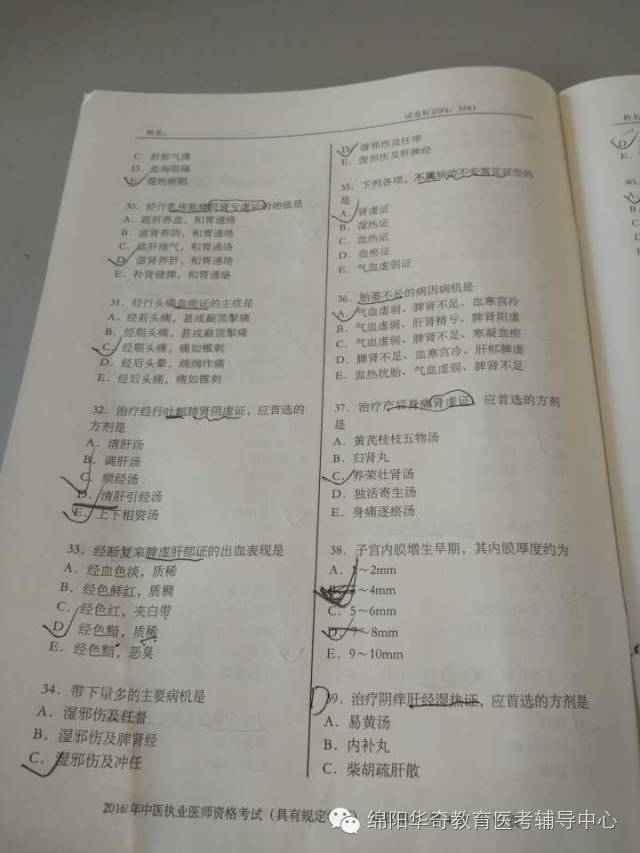 姓名：
试卷标识码：3583
C．肝郁气滞
D．血海阻隔
E．湿热瘀阻
30．经行乳房胀痛肝肾亏虚证的治法是
A．疏肝养血，和胃通络
B．滋肾养阴，和胃通络
C．疏肝理气，和胃通络
D．滋肾养肝，和胃通络
E．补肾健脾，和胃通络
31．经行头痛血瘀证的主症是
A．经前头痛，甚或巅顶掣痛
B．经期头痛，甚或巅顶掣痛
C．经期头痛，痛如锥刺
D．经后头晕，绵绵作痛
E．经后头痛，痛如锥刺
32．治疗经行吐衄肺肾阴虚证，应首选的
方剂是
A．清肝汤
B．调肝汤
C．顺经汤
D．清肝引经汤
E．上下相资汤
33．经断复来脾虚肝郁证的出血表现是
A．经血色淡，质稀
B．经色鲜红，质稠
C．经色红，夹白带
D．经色黯，质稀
E．经色黯，恶臭
34．带下量多的主要病机是
A．湿邪伤及任督
B．湿邪伤及脾肾经
C．湿邪伤及冲任
D．湿邪伤及任带
E．湿邪伤及肝脾经
35．下列各项，不属胎动不安常见证型的
是
A．肾虚证
B．湿热证
C．血热证
D．血瘀证
E．气血虚弱证
36．胎萎不长的病因病机是
A．气血虚弱、脾肾不足、血寒宫冷
B．气血虚弱、肝肾精亏、脾肾阳虚
C．气血虚弱、脾肾不足、寒凝血瘀
D．脾肾不足、血寒宫冷、肝郁脾虚
E．血热扰胎、气血虚弱、脾肾不足
37．治疗产后身痛肾虚证，应首选的方剂
是
A．黄芪桂枝五物汤
B．归肾丸
C．养荣壮肾汤
D．独活寄生汤
E．身痛逐瘀汤
38．子宫内膜增生早期，其内膜厚度约为
A．1～2mm
～4mm
C．5～6mm
D．7～8mm
E．9～10mm
39．治疗阴痒肝经湿热证，应首选的方剂是
A．易黄汤
B．内补丸
C．柴胡疏肝散
2016年中医执业医师资格考试（具有规定
绵阳华奇教育医考辅导中心
姓名
D．
E．
40．
A
B．